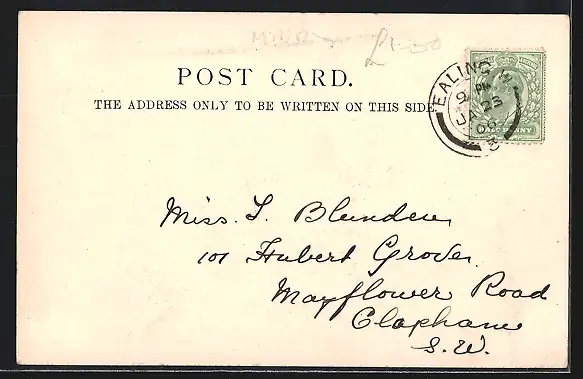 £1.00
POST CARD.
THE ADDRESS ONLY TO BE WRITTEN ON THIS SIDE
EALING W
9 PM
JA 23
06
3
HALFPENNY
Miss. I. Blunden
101 Hubert Grove.
Mayflower Road
Clapham
S.W.